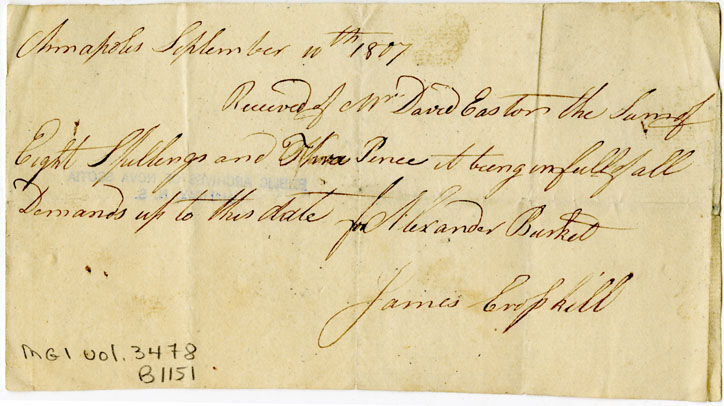 Annapolis September 10th 1807
Received of Mr David Easton the Sum of
Eight Shillings and Three Pence it being in full of all
Demands up to this date for Alexander Burket
James Crophill
PUBLIC ARCHIVES OF NOVA SCOTIA
MG1 vol. 3478
B1151